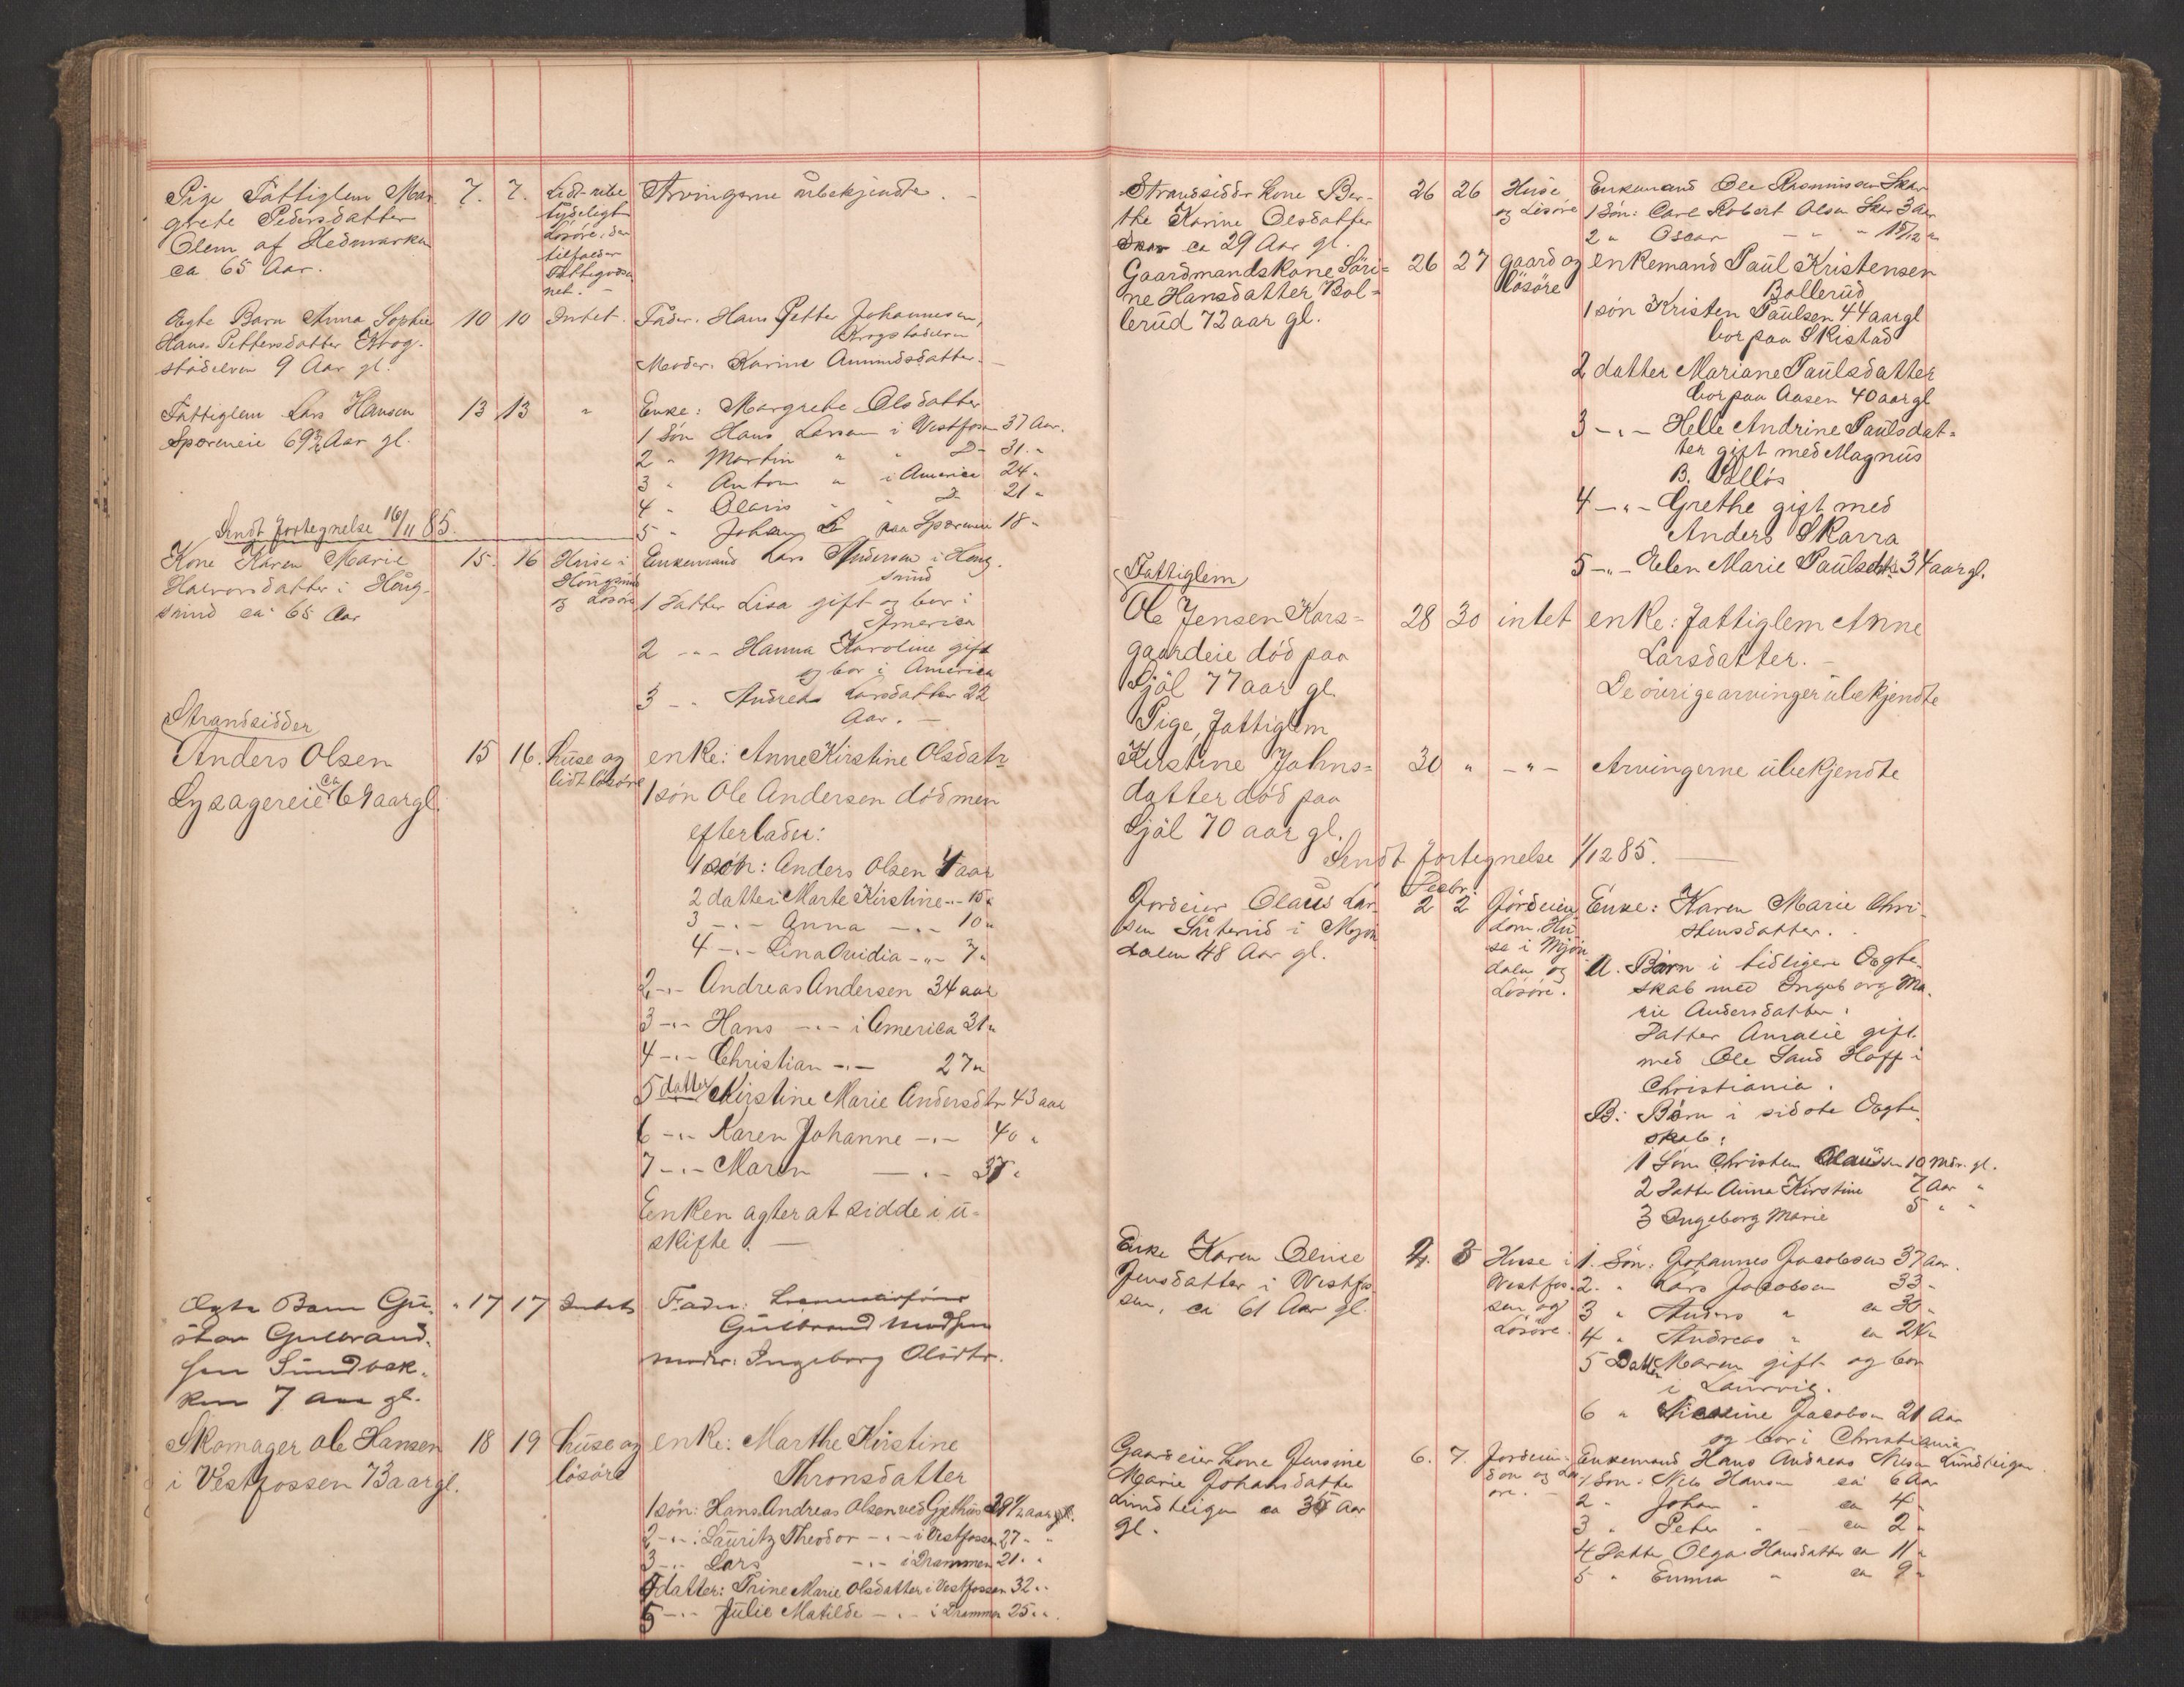 Pige Fattiglem Mar-
grete Pedersdatter
Olem af Hedmarken
ca 65 Aar.
7. 7.
Lidt ube
tydeligt
Løsøre, der
tilfalder
Fattigvæse
net. -
Arvingerne ubekjendte. -
Ægte Barn Anna Sophie
Hans Pettersdatter Krog-
stadelven 9 Aar gl.
10 10 Intet.
Fader. Hans Petter Johannesen,
Krogstadelven
Moder. Karine Amundsdatter. -
Fattiglem Lars Hansen
Sporeneie 69½ Aar gl.
13 13 "
Enke: Margrethe Olsdatter
1 Søn Hans Larsen i Vestfossen 37 Aar.
2 " Martin " " D- 31. "
3 " Anton " i America 24 "
4 " Olavis " " D- 21 "
5 " Johan L paa Sporeneie 18 "
Sendt Fortegnelse 16/11 85.
Kone Karen Marie
Halvorsdatter i Houg-
sund ca 65 Aar
15. 16
Huse i
Hougsund
og Løsøre
Enkemand Lars Andersen i Houg-
sund
1 Datter Lisa gift og bor i
America
2 - " - Hanna Karoline gift
og bor i America
3 - " Andrea Larsdatter 22
Aar. -
Strandsidder
Anders Olsen
Lysagereie ca 69 aar gl.
15 16.
huse og
lidt løsøre
enke: Anne Kirstine Olsdatr
1 søn Ole Andersen død men
efterlader:
1 søn: Anders Olsen 4 aar
2 datter: Marte Kirstine - " - 15 "
3 - " - Anna - " - 10 "
4 - " - Lina Ovidia - " - 7 "
2 - " - Andreas Andersen 34 aar
3 - " - Hans - " - i America 31 "
4 - " - Christian - " - 27 "
5 datter Kirstine Marie Andersdtr 43 aar
6 - " - Karen Johanne - " - 40 "
7 - " - Maren - " - 37 "
Enken agter at sidde i u-
skifte. -
Ægte Barn Gu-
stav Gulbrand-
sen Sundbak-
ken 7 aar gl.
17 17 Intet
Fader:
Gulbrand Madsen
moder: Ingeborg Olsdtr.
Skomager Ole Hansen
i Vestfossen 73 aar gl.
18 19
huse og
løsøre
enke: Marthe Kirstine
Thronsdatter
1 søn: Hans Andreas Olsen ved Gjethus 39½ aar gl.
2 - " - : Lauritz Theodor - " - i Vestfossen 27 - "
3 - " - Lars - " - i Drammen 21. "
4 datter: Trine Marie Olsdatter i Vestfossen 32 "
5 - " - Julie Matilde - " - i Drammen 25 "
Strandsidder Kone Ber-
the Karine Olsdatter
Skar ca 29 Aar gl.
26 26
Huse
og Løsøre
Enkemand Ole Rasmussen Skar
1 Søn: Carl Robert Olsen Skar 3 Aar
2 " Oscar - " - " 15/12 "
Gaardmandskone Søri-
ne Hansdatter Bol-
lerud 72 aar gl.
26 27
gaard og
løsøre
enkemand Paul Kristensen
Bollerud
1 søn Kristen Paulsen 44 aar gl
bor paa Skistad
2 datter Mariane Paulsdatter
bor paa Aasen 40 aar gl
3 - " - Helle Andrine Paulsdat-
ter gift med Magnus
B. Valløs
4 - " - Grethe gift med
Anders Skarra
5 - " - Elen Marie Paulsdtr 34 aar gl.
Fattiglem
Ole Jensen Kors-
gaardeie død paa
Fjøl 77 aar gl.
28 30 intet
enke: fattiglem Anne
Larsdatter. -
De øvrige arvinger ubekjendte
Pige, fattiglem
Kirstine Johns-
datter død paa
Fjøl 70 aar gl.
30 " - " -
Arvingerne ubekjendte
Sendt fortegnelse 1/12 85. -
Jordeier Olaus Lar-
sen Sæterud i Mjøn
dalen 48 Aar gl.
Decbr.
2 2
Jordeien
dom. Hu-
se i Mjøn
dalen og
Løsøre.
Enke: Karen Marie Chri-
stensdatter. -
A. Børn i tidligere Ægte-
skab med Ingeborg Ma-
rie Andersdatter:
Datter Amalie gift
med Ole Sand Hoff i
Christiania.
B: Børn i sidste Ægte-
skab:
1 Søn Christen Olaussen 10 Mdr. gl.
2 Datter Anna Kirstine 7 Aar "
3 Ingeborg Marie 5 " "
Enke Karen Oline
Jensdatter i Vestfos-
sen, ca 61 Aar gl.
4. 5
Huse i
Vestfos-
sen og
Løsøre.
1. Søn: Johannes Jacobsen 37 Aar.
2. " Lars Jacobsen 33 -
3 " Anders " ca 30 "
4 " Andreas " ca 24 "
5 Datter Maren gift og bor
i Laurvig.
6 " Nicoline Jacobsen 21 Aar
og bor i Christiania
Gaardeier Kone Jensine
Marie Johansdatter
Lundteigen ca 35 Aar
gl.
6. 7.
Jordeien-
dom og Løs
øre. -
Enkemand Hans Andreas Nilsen Lundteigen
1 Søn: Nils Hansen ca 6 Aar
2 " Johan " ca 4 "
3 " Peter " ca 2 "
4 Datter Olga Hansdatter ca 11 "
5 " Emma " ca 9 "